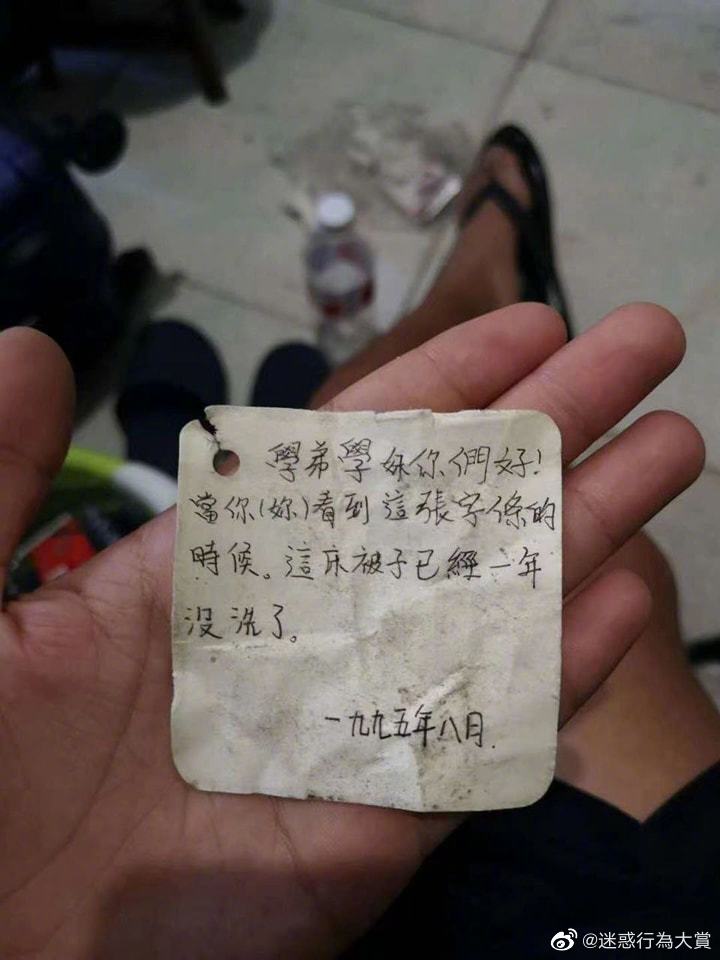 學弟學妹你們好!
當你(妳)看到這張字條的
時候。這床被子已經一年
没洗了。
一九九五年八月.
@迷惑行為大賞